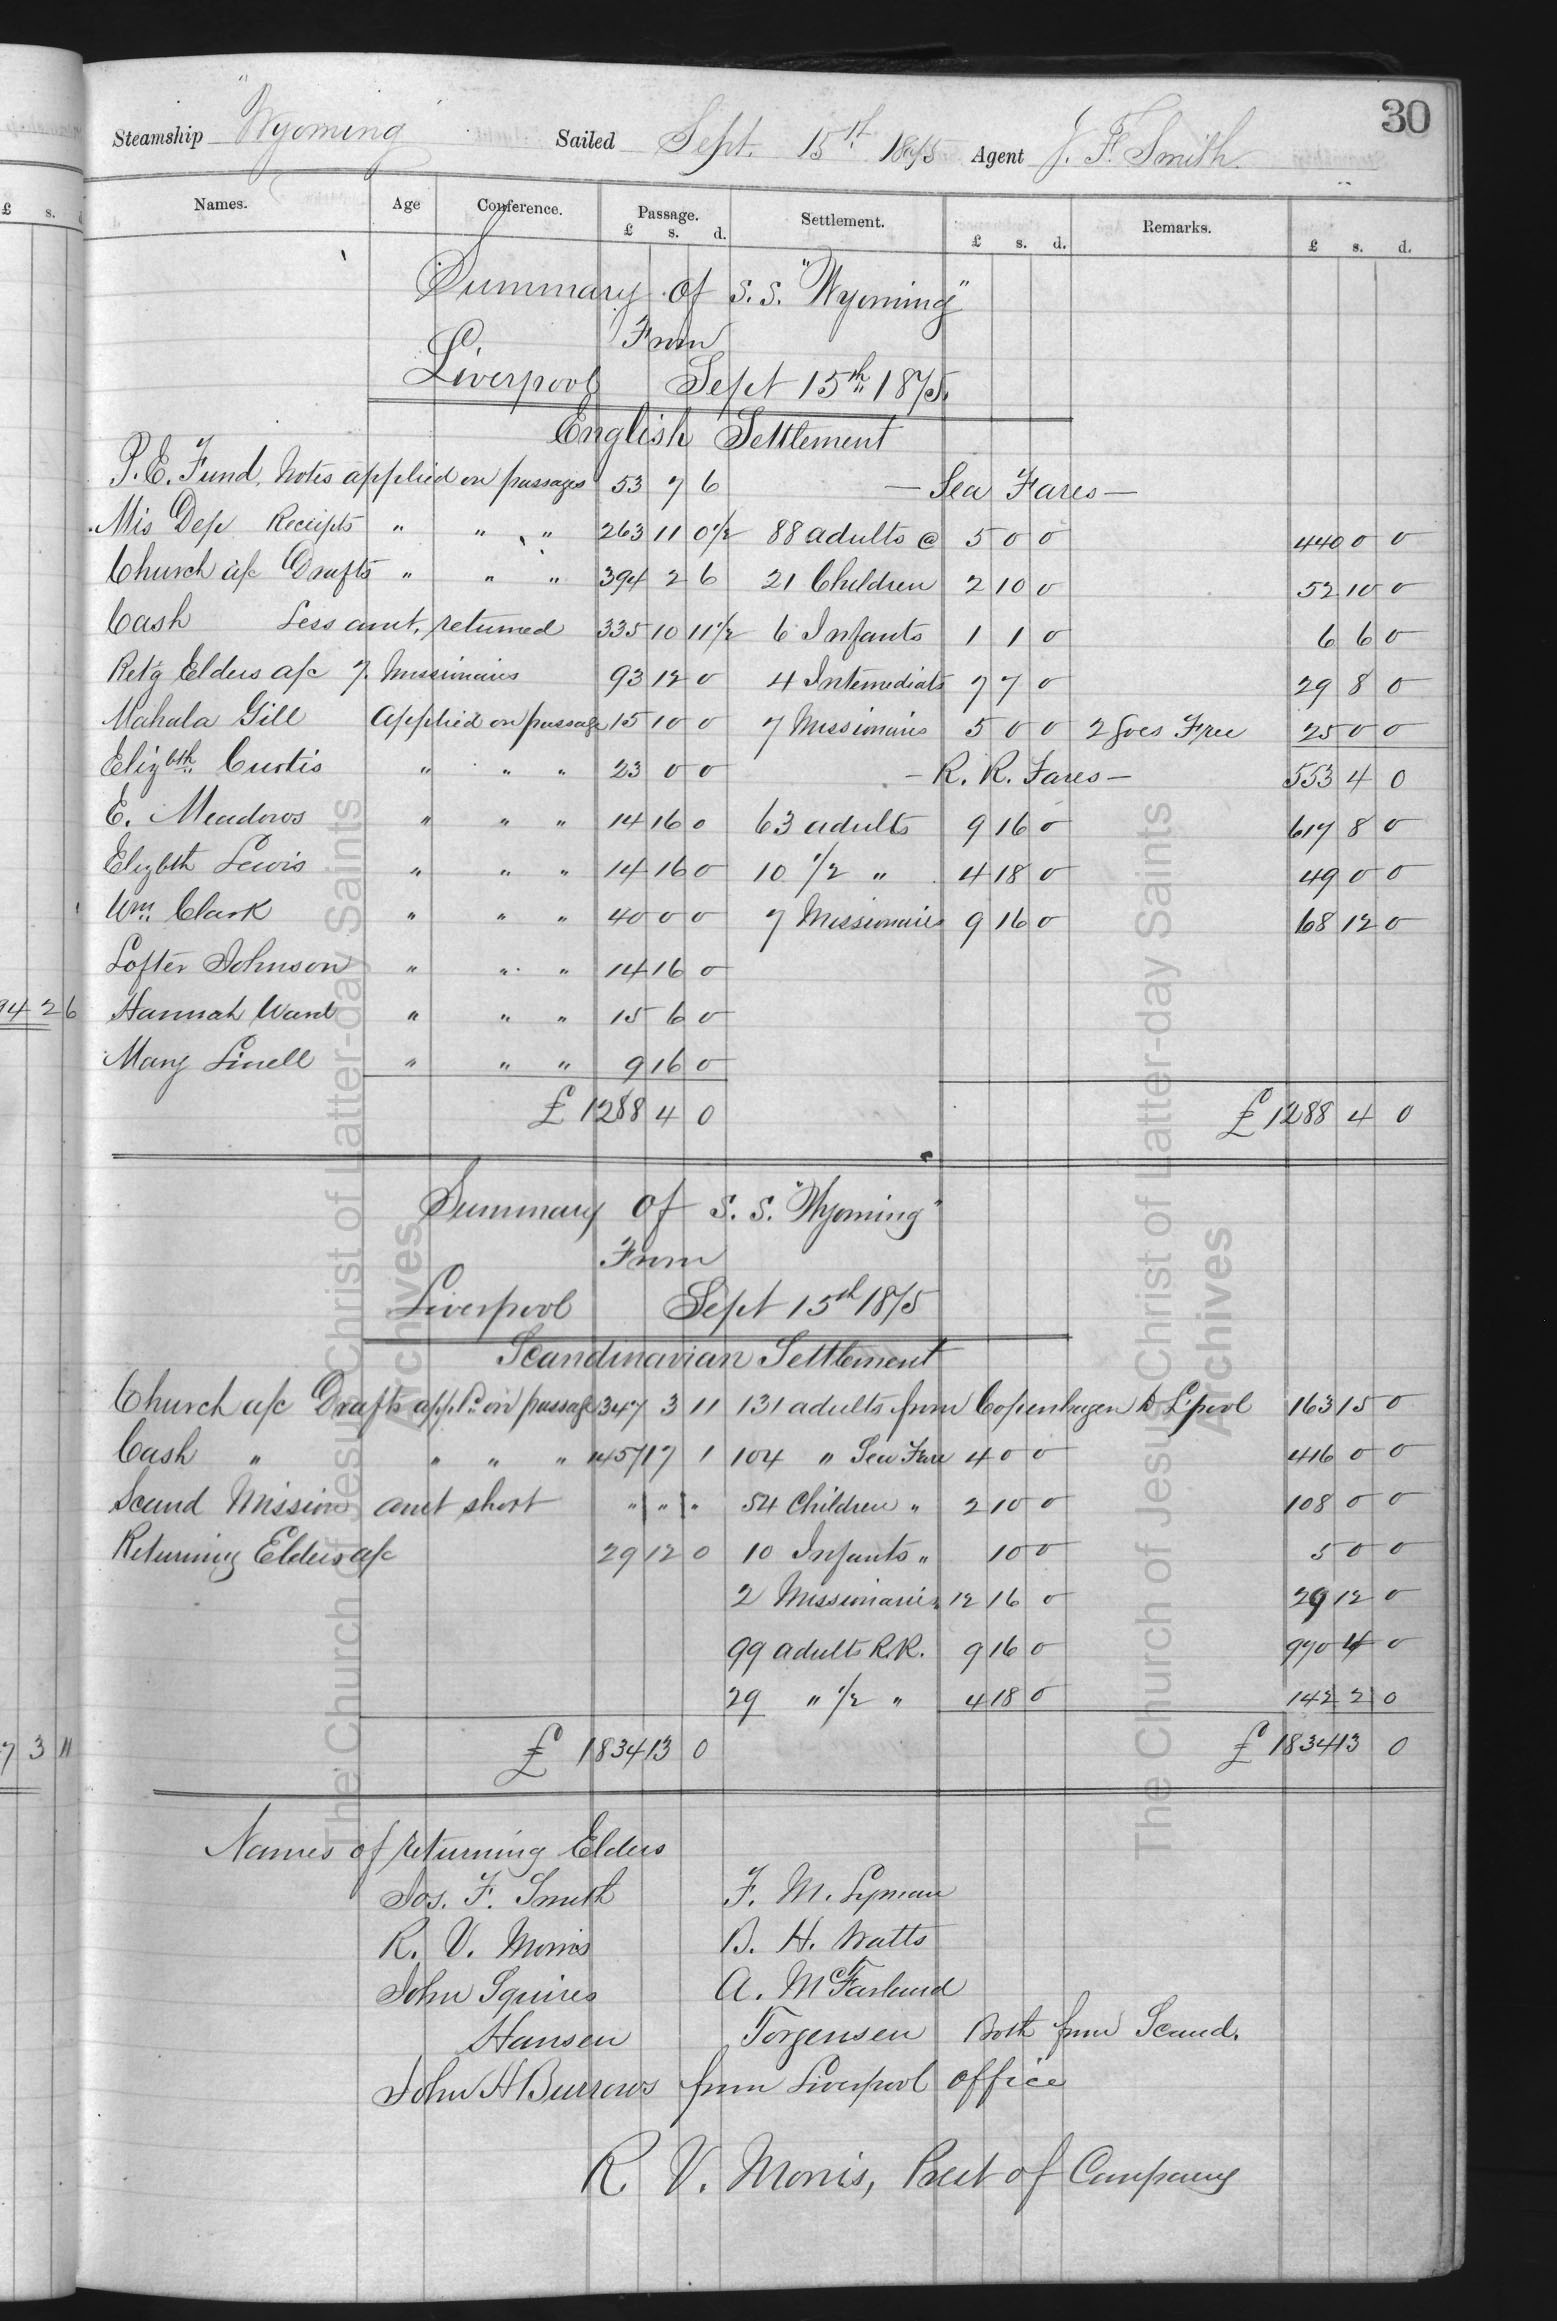 30
Steamship "Wyoming Sailed Sept. 15th 1875 Agent J. F. Smith
£ s. d.
Names. Age Conference. Passage. £ s. d. Settlement. £ s. d. Remarks. £ s. d.
Summary of S.S. "Wyoming"
From
Liverpool Sept 15th 1875.
English Settlement
P.E. Fund, Notes applied on passages 53 7 6 — Sea Fares —
Mis Dep Receipts " " " 263 11 0½ 88 adults @ 5 0 0 440 0 0
Church a/c Drafts " " " 394 2 6 21 Children 2 10 0 52 10 0
Cash Less amt. returned 335 10 11½ 6 Infants 1 1 0 6 6 0
Ret'g Elders a/c 7. Missionaries 93 12 0 4 Intermediats 7 7 0 29 8 0
Mahala Gill applied on passage 15 10 0 7 Missionaries 5 0 0 2 goes Free 25 0 0
Elizbth Curtis " " " 23 0 0 — R. R. Fares — 553 4 0
E. Meadows " " " 14 16 0 63 adults 9 16 0 617 8 0
Elizbth Lewis " " " 14 16 0 10 ½ " 4 18 0 49 0 0
Wm. Clark " " " 40 0 0 7 Missionaries 9 16 0 68 12 0
Lofter Johnson " " " 14 16 0
94 2 6 Hannah Ward " " " 15 6 0
Mary Linell " " " 9 16 0
£ 1288 4 0 £ 1288 4 0
Summary of S.S. "Wyoming"
From
Liverpool Sept 15th 1875
Scandinavian Settlement
Church a/c Drafts appl'd on passage 347 3 11 131 adults from Copenhagen to L'pool 163 15 0
Cash " " " " 1457 17 1 104 " Sea Fare 4 0 0 416 0 0
Scand Mission amt short " " " 54 Children " 2 10 0 108 0 0
Returning Elders a/c 29 12 0 10 Infants " 10 0 5 0 0
2 Missionaries 12 16 0 29 12 0
99 adults R.R. 9 16 0 970 4 0
29 " ½ " 4 18 0 142 2 0
7 3 11 £ 1834 13 0 £ 1834 13 0
Names of returning Elders
Jos. F. Smith F. M. Lyman
R. V. Morris B. H. Watts
John Squires A. McFarland
Hansen Jorgensen Both from Scand.
John H Burrows from Liverpool office
R V. Morris, Prest of Company
The Church of Jesus Christ of Latter-day Saints
Archives
The Church of Jesus Christ of Latter-day Saints
Archives